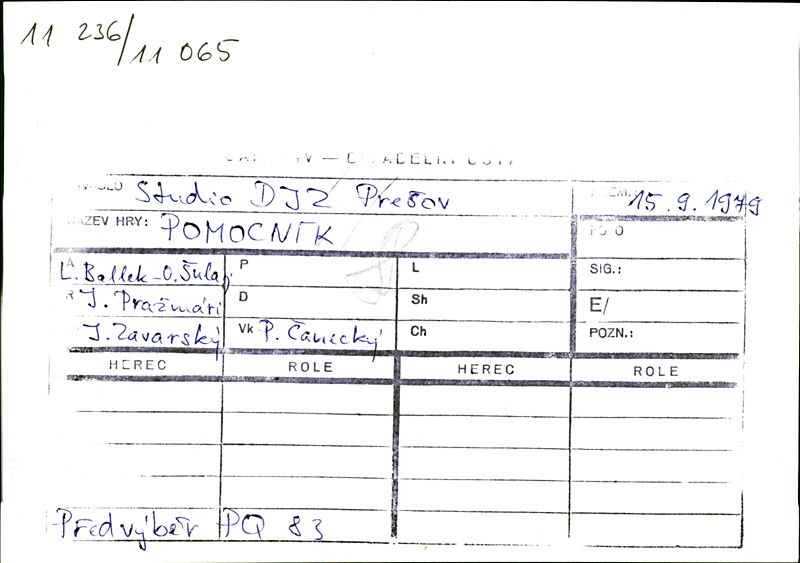 11 236/11 065
Studio DJZ Prešov 15.9.1979
NÁZEV HRY: POMOCNÍK
L. Ballek - O. Šulaj P L SIG.:
R J. Pražmári D Sh E/
J. Zavarský Vk P. Čanecký Ch POZN.:
HEREC ROLE HEREC ROLE
Předvýběr PQ 83